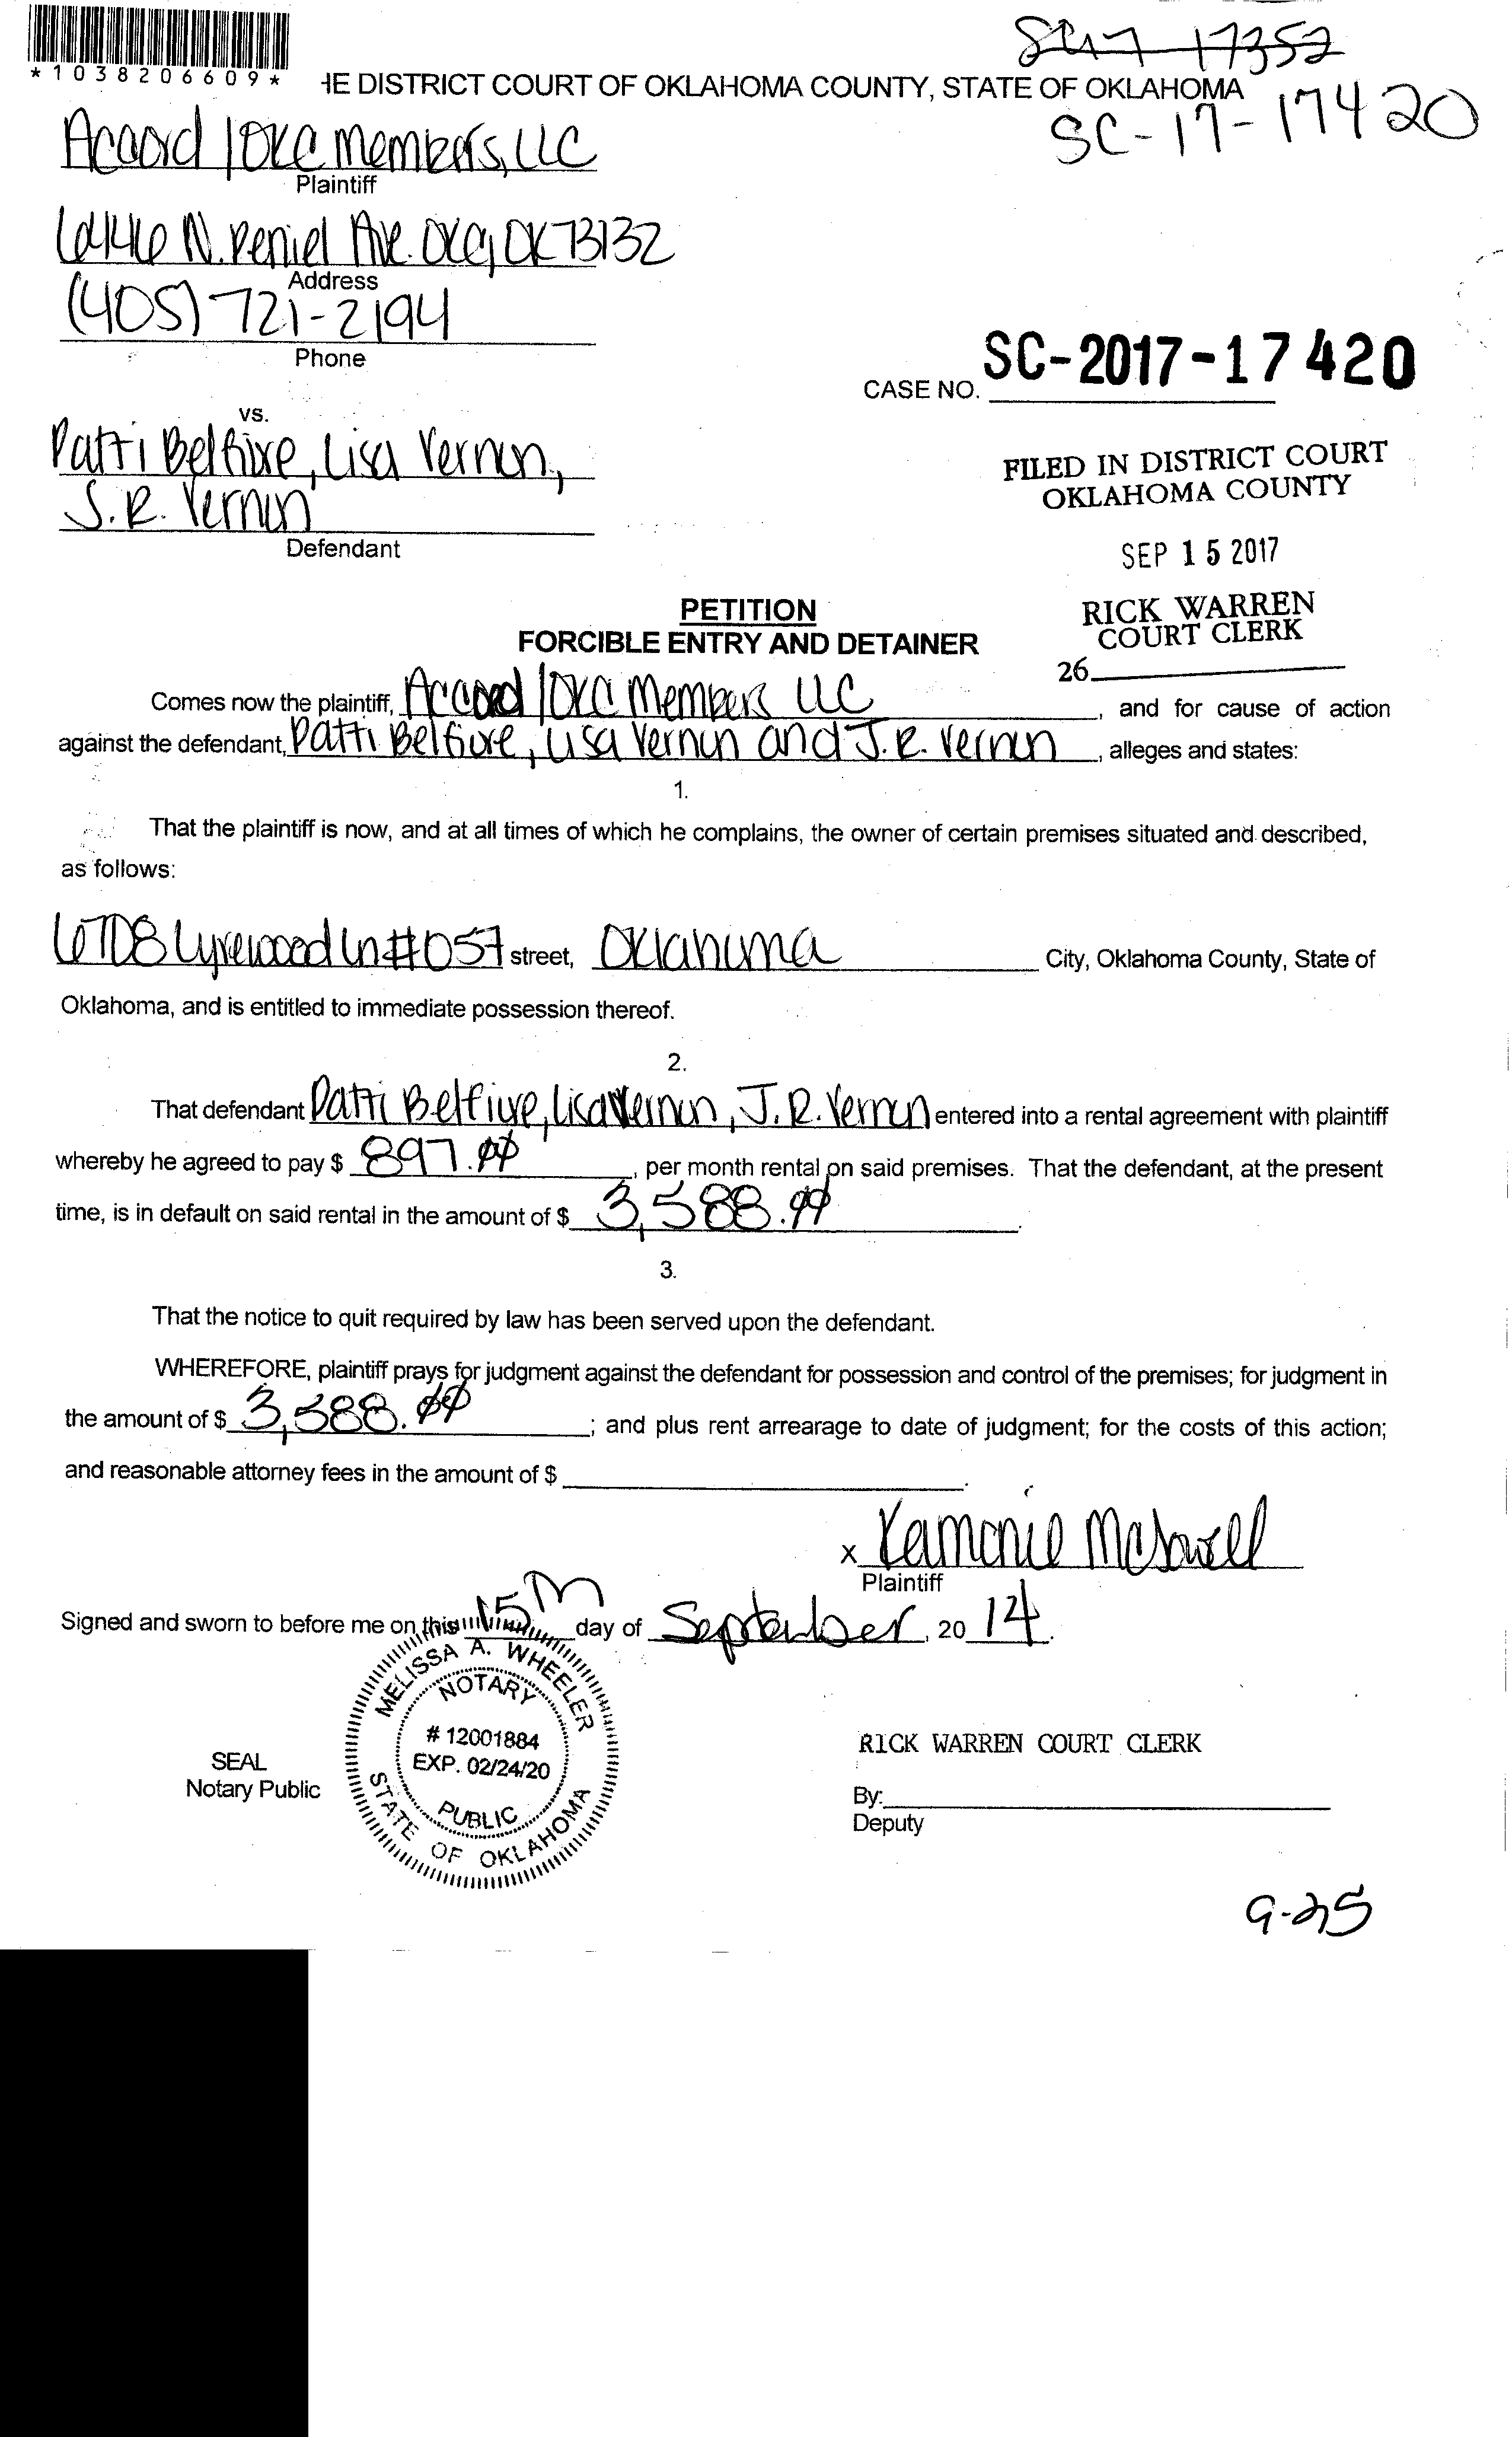 SC-17-17352
*1038206609*
HE DISTRICT COURT OF OKLAHOMA COUNTY, STATE OF OKLAHOMA
SC-17-17420
Accord/OKC Members, LLC
Plaintiff
6446 N. Peniel Ave. OKC, OK 73132
Address
(405) 721-2194
Phone
CASE NO. SC-2017-17420
vs.
Patti Belfiore, Lisa Vernon,
J.R. Vernon
Defendant
FILED IN DISTRICT COURT
OKLAHOMA COUNTY
SEP 15 2017
RICK WARREN
COURT CLERK
26
PETITION
FORCIBLE ENTRY AND DETAINER
Comes now the plaintiff, Accord/OKC Members LLC, and for cause of action
against the defendant, Patti Belfiore, Lisa Vernon and J.R. Vernon, alleges and states:
1.
That the plaintiff is now, and at all times of which he complains, the owner of certain premises situated and described,
as follows:
6708 Lyrewood Ln #057 street, Oklahoma City, Oklahoma County, State of
Oklahoma, and is entitled to immediate possession thereof.
2.
That defendant Patti Belfiore, Lisa Vernon, J.R. Vernon entered into a rental agreement with plaintiff
whereby he agreed to pay $ 897.00, per month rental on said premises. That the defendant, at the present
time, is in default on said rental in the amount of $ 3,588.00.
3.
That the notice to quit required by law has been served upon the defendant.
WHEREFORE, plaintiff prays for judgment against the defendant for possession and control of the premises; for judgment in
the amount of $ 3,588.00; and plus rent arrearage to date of judgment; for the costs of this action;
and reasonable attorney fees in the amount of $ .
x
Plaintiff
Signed and sworn to before me on this 15th day of September, 20 17.
MELISSA A. WHEELER
NOTARY
# 12001884
EXP. 02/24/20
PUBLIC
STATE OF OKLAHOMA
SEAL
Notary Public
RICK WARREN COURT CLERK
By:
Deputy
9-25